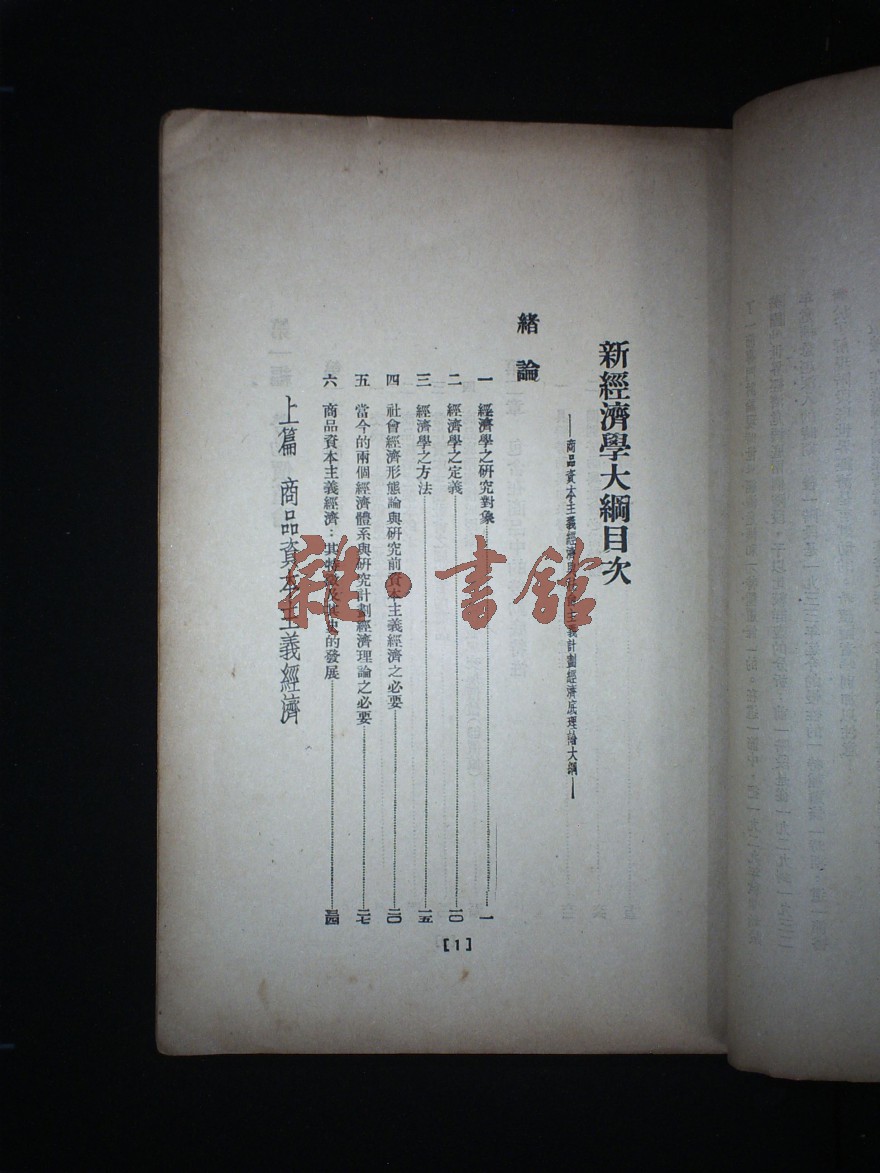 新經濟學大綱目次
——商品資本主義經濟與社會主義計劃經濟底理論大綱——
緒論
一 經濟學之研究對象 一
二 經濟學之定義 一〇
三 經濟學之方法 一五
四 社會經濟形態論與研究前資本主義經濟之必要 二〇
五 當今的兩個經濟體系與研究計劃經濟理論之必要 二七
六 商品資本主義經濟：其特徵及其史的發展 三四
上篇 商品資本主義經濟
[1]
雜·書館